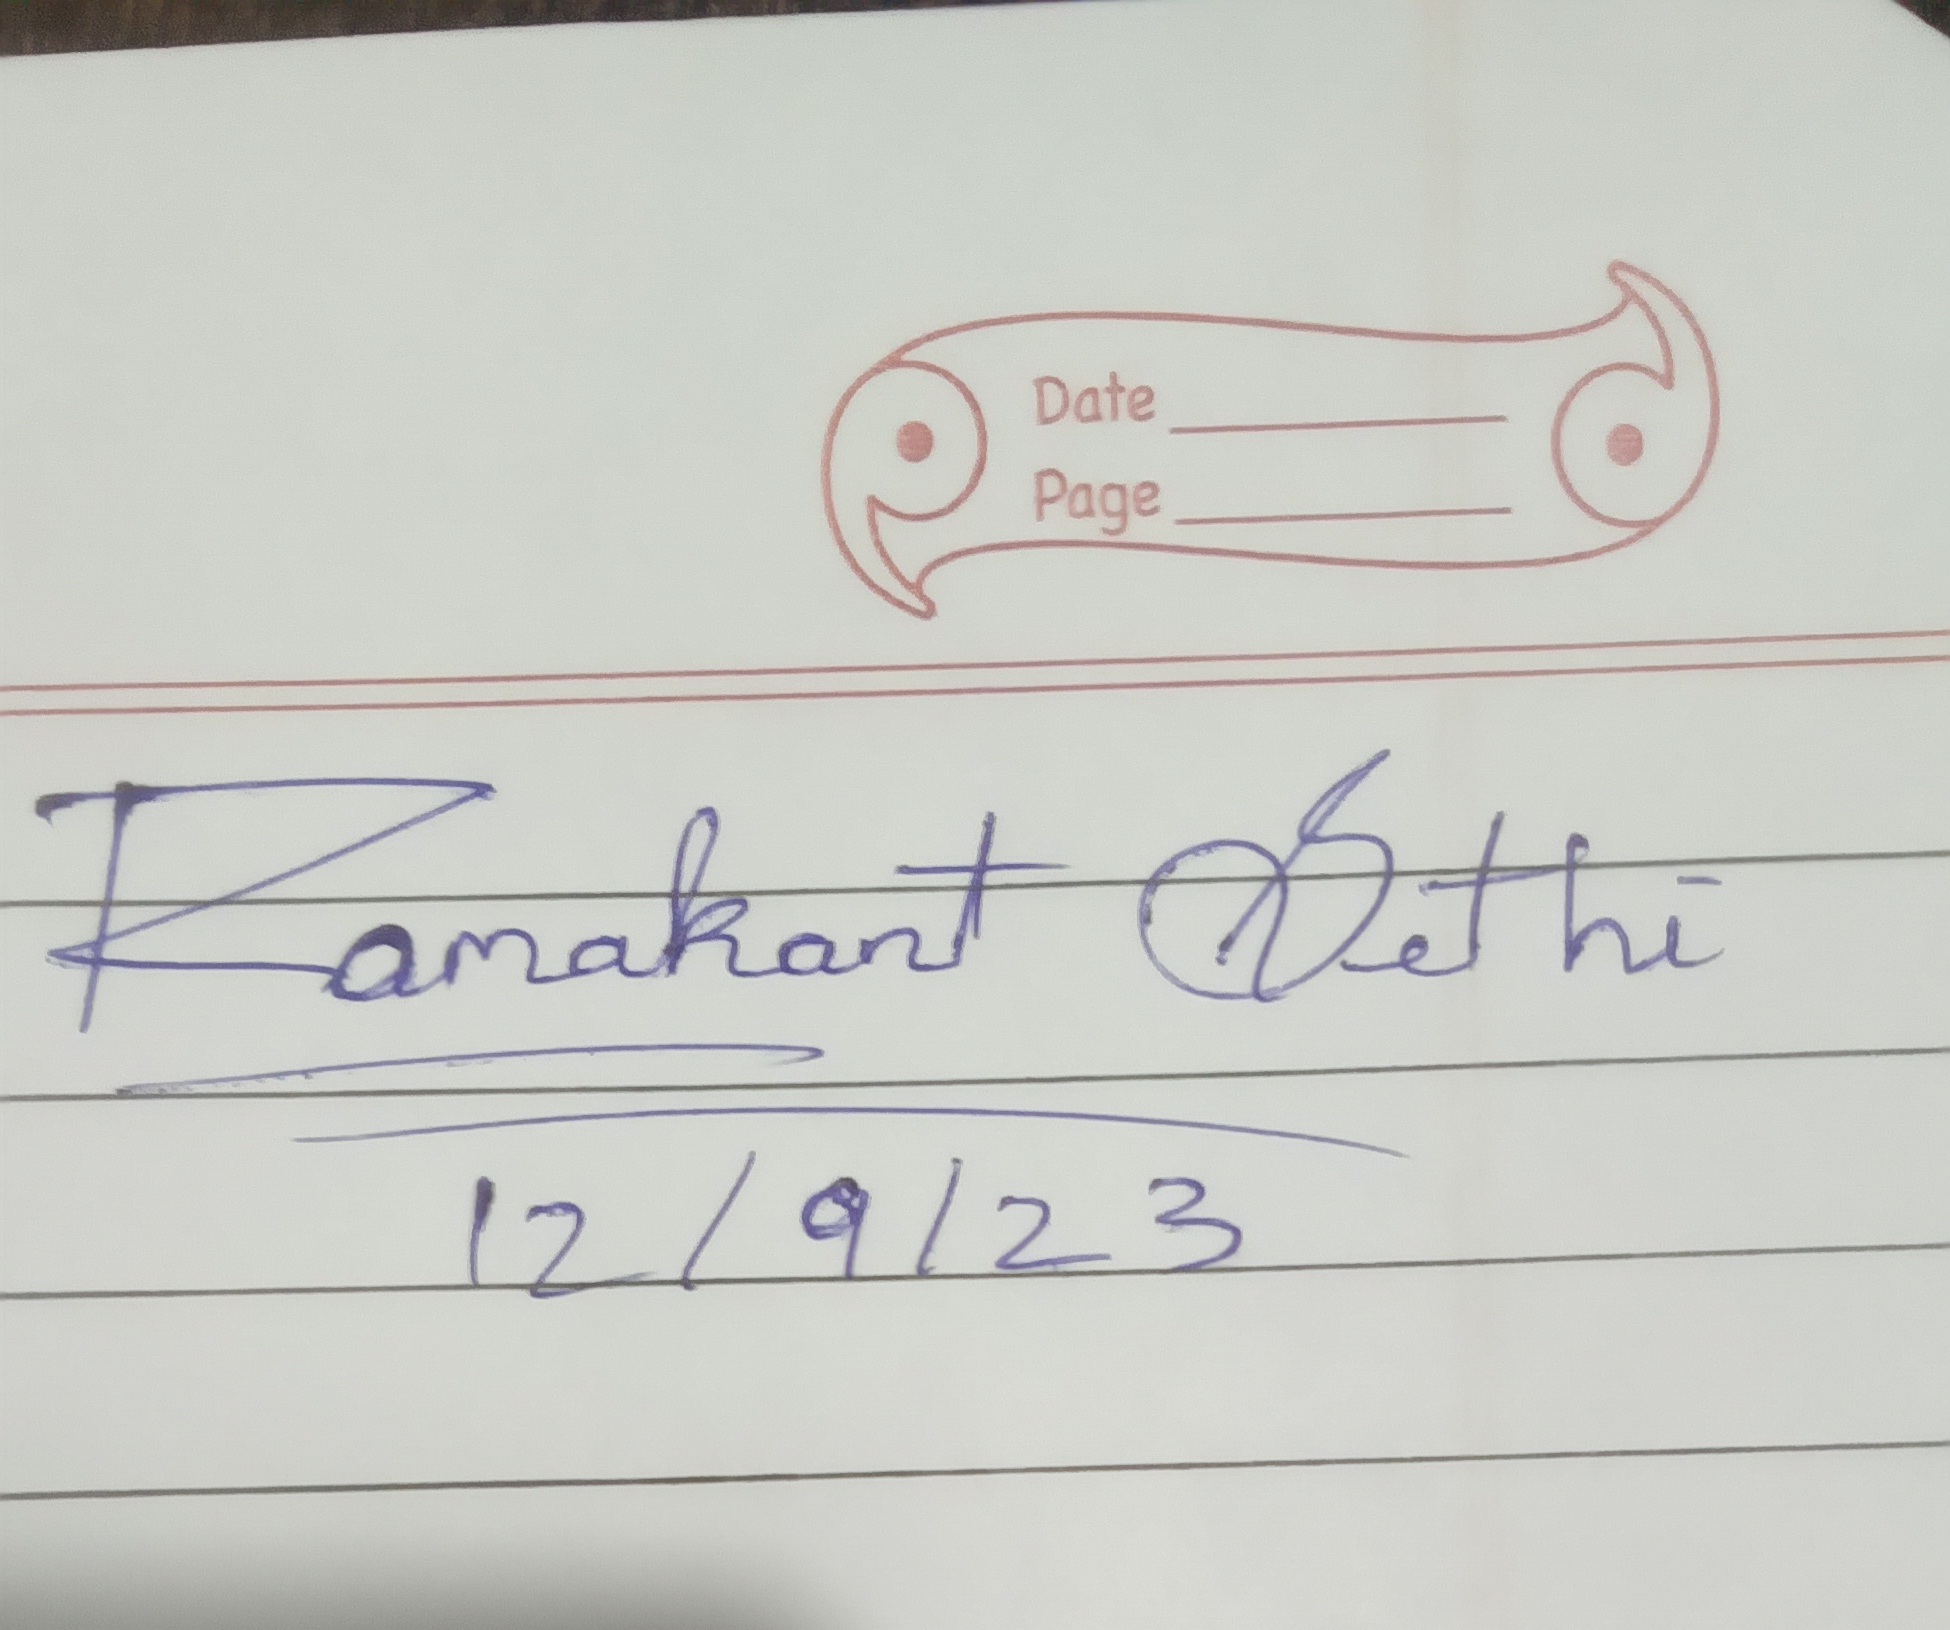 Date
Page
Ramakant Sethi
12/9/23